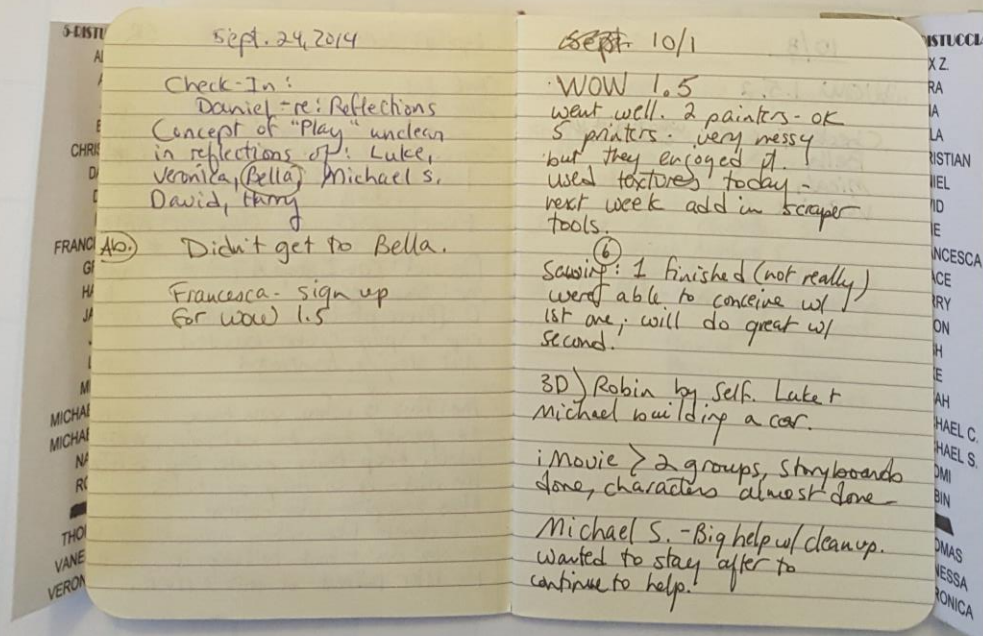 5-DISTU
CHRIS
FRANC
MICHAE
MICHAE
THO
VANE
VERON
Sept. 24, 2014
Check-In:
Daniel - re: Reflections
Concept of "Play" unclear
in reflections of: Luke,
Veronica, Bella, Michael S.
David, Harry
Ab. Didn't get to Bella.
Francesca - sign up
for WOW 1.5
Sept. 10/1
WOW 1.5
went well. 2 painters - ok
5 printers - very messy
but they enjoyed it.
used textures today -
next week add in scraper
tools.
6
Sewing: 1 finished (not really)
were able to conceive w/
1st one; will do great w/
second.
3D) Robin by self. Luke +
Michael building a car.
iMovie > 2 groups, storyboards
done, characters almost done -
Michael S. - Big help w/ cleanup.
wanted to stay after to
continue to help.
ISTUCCI
X Z.
RA
IA
LA
RISTIAN
IEL
ID
E
NCESCA
ACE
RRY
ON
H
E
AH
HAEL C.
HAEL S.
OMI
BIN
OMAS
NESSA
RONICA